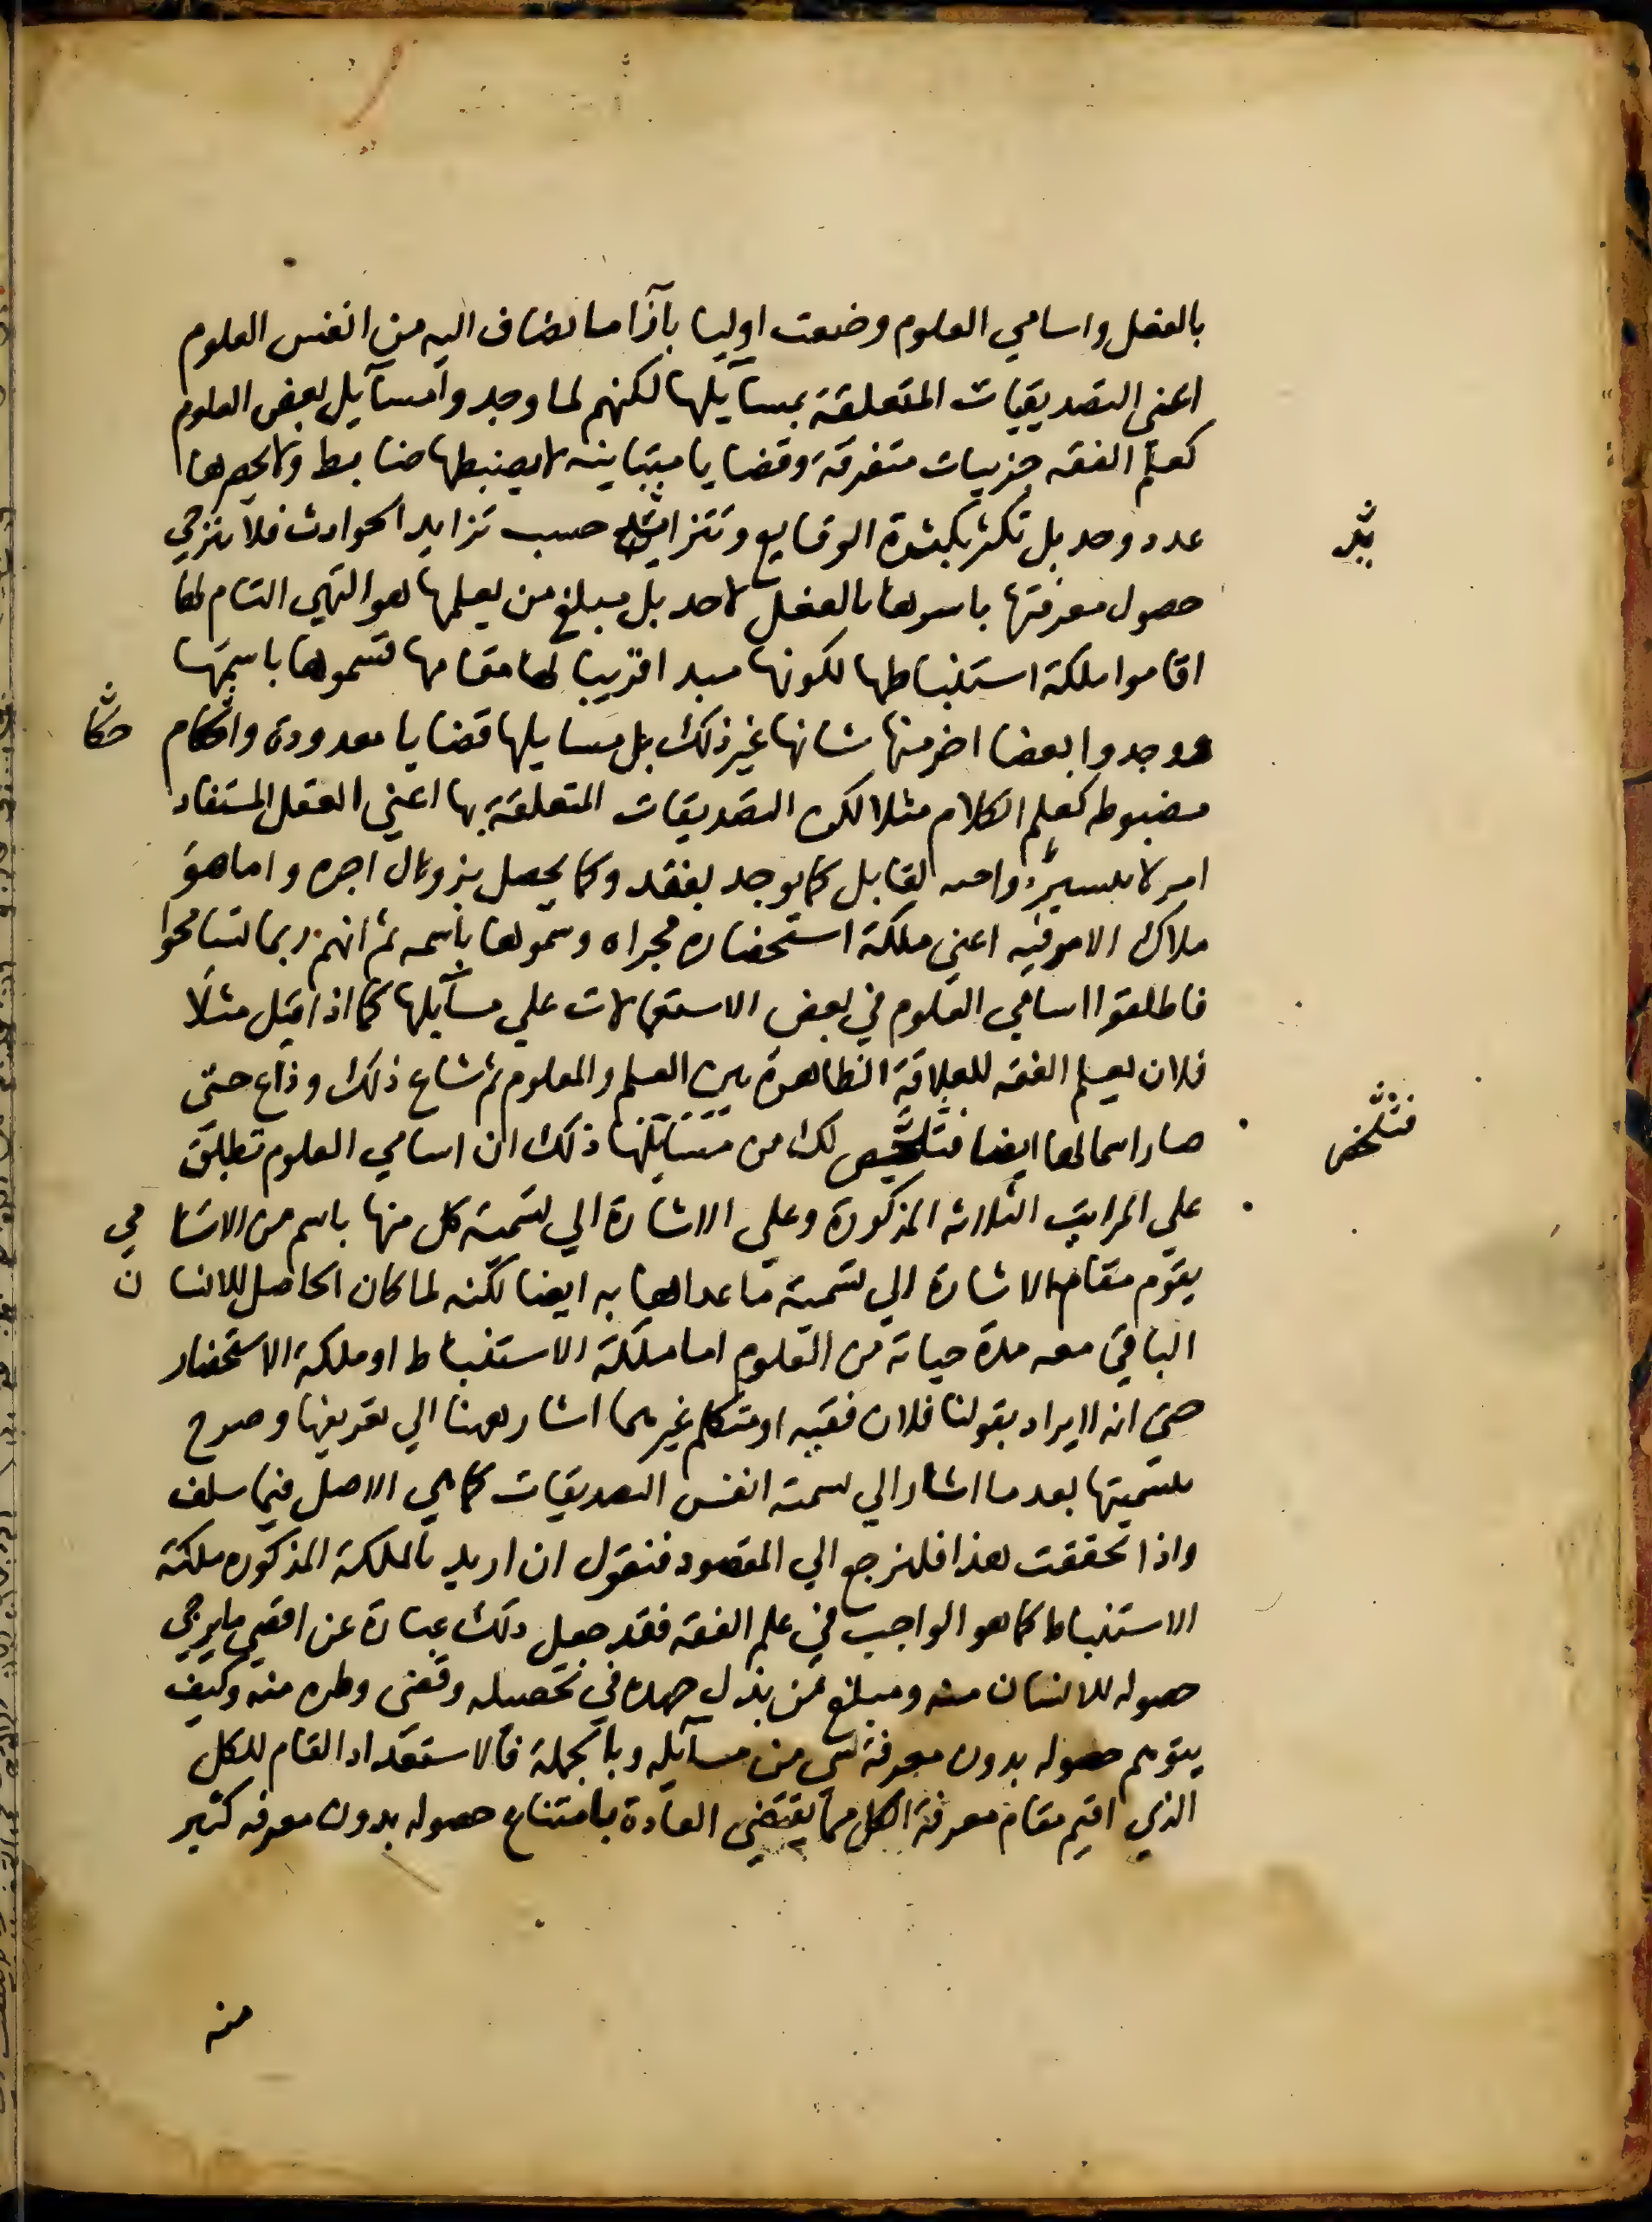 بالفعل واسامي العلوم وضعت اوليا بآزا ما تضاف اليه من انفس العلوم
اعني التصديقيات المتعلقة بمسآيلها لكنهم لما وجدوا مسآيل بعض العلوم
كعلم الفقه جزييات متفرقة وقضايا متباينه لا يضبطها ضابط ولا يحصرها
عدد وحد بل تكثر بكثرة الوقايع وتتزايد حسب تزايد الحوادث فلا يترجي
يد
حصول معرفتها باسرها بالفعل لاحد بل مبلغ من يعلمها هو التهي التام لها
اقاموا ملكة استنباطها لكونها مبدا قريبا لها مقامها فسموها باسمها
ووجدوا بعضا اخر منها شانها غير ذلك بل مسايلها قضايا معدودة واحكام
حكا
مضبوطه كعلم الكلام مثلا لكن التصديقات المتعلقة بها اعني العقل المستفاد
امر لا يستمر واحد لقابل كما يوجد يفقد وكما يحصل يزول اجره واما هو
ملاك الامر فيه اعني ملكة استحضاره مجراه وسموها باسمه ثم انهم ربما تسامحوا
فاطلقوا اسامي العلوم في بعض الاستعمالات علي مسآيلها كما اذا قيل مثلا
فلان يعلم الفقه للعلاقة الظاهرة بين العلم والمعلوم ثم شاع ذلك وذاع حتي
صار اسما لها ايضا فتلخص لك من ذلك ان اسامي العلوم تطلق
فتلخص
علي المراتب الثلاثه المذكورة وعلي الاشارة الي تسمية كل منها باسم من الاسا مي
يقوم مقام الاشارة الي تسمية ما عداها به ايضا لكنه لما كان الحاصل للانسا ن
الباقي معه مدة حياته من العلوم اما ملكة الاستنباط او ملكة الاستحضار
حتي انه لا يراد بقولنا فلان فقيه او متكلم غيرهما اشار ههنا الي تعريفها وصرح
بتسميتها بعد ما اشار الي تسمية انفس التصديقات كما هي الاصل فيما سلف
واذا تحققت هذا فلنرجع الي المقصود فنقول ان اريد بالملكة المذكوره ملكة
الاستنباط كما هو الواجب في علم الفقه فقد جعل ذلك عبارة عن اقصي ما يرجي
حصوله للانسان منه ومبلغ من بذل جهده في تحصيله وقضي وطره منه وكيف
يتوهم حصوله بدون معرفة شي من مسآيله وبالجملة فالاستعداد التام للكل
الذي اقيم مقام معرفة الكل مما يقتضي العادة بامتناع حصوله بدون معرفه كثير
منه